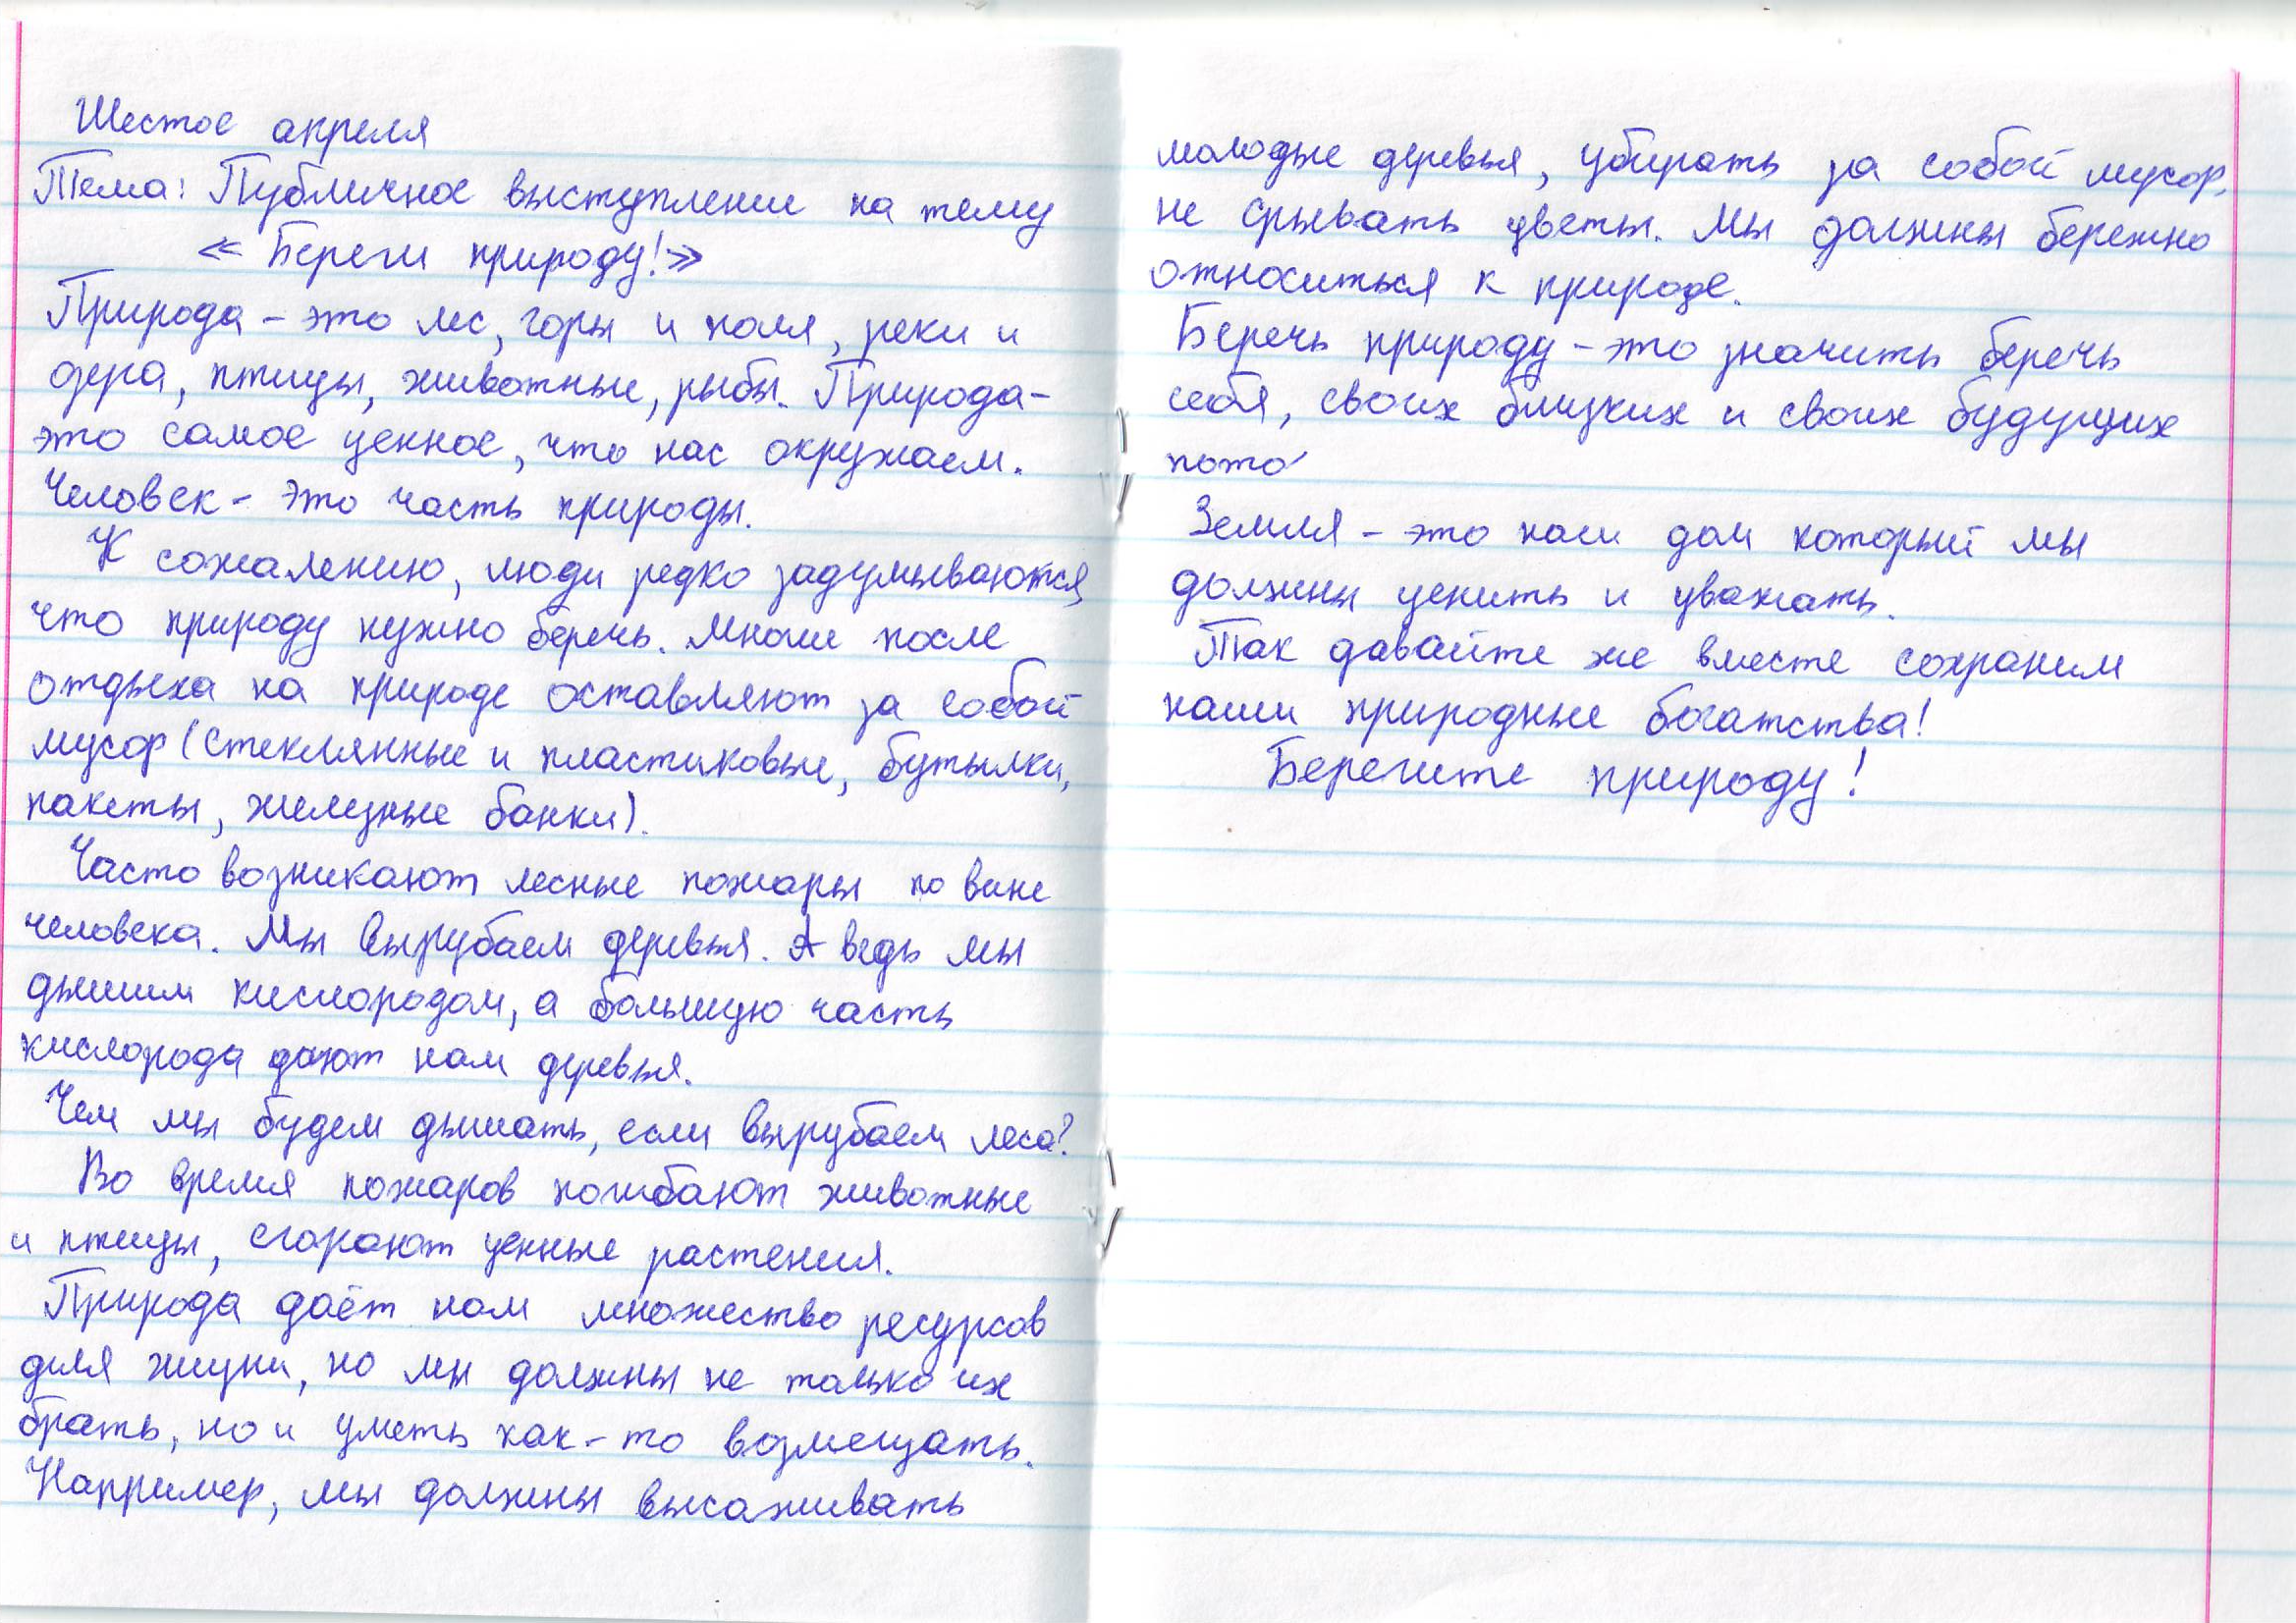 Шестое апреля
Тема: Публичное выступление на тему
« Береги природу!»
Природа - это лес, горы и поля, реки и
озера, птицы, животные, рыбы. Природа-
это самое ценное, что нас окружаем.
Человек - это часть природы.
К сожалению, люди редко задумываются,
что природу нужно беречь. Многие после
отдыха на природе оставляют за собой
мусор (стеклянные и пластиковые, бутылки,
пакеты, железные банки).
Часто возникают лесные пожары по вине
человека. Мы вырубаем деревья. А ведь мы
дышим кислородом, а большую часть
кислорода дают нам деревья.
Чем мы будем дышать, если вырубаем леса?
Во время пожаров погибают животные
и птицы, сгорают ценные растения.
Природа даёт нам множество ресурсов
для жизни, но мы должны не только их
брать, но и уметь как-то возмещать.
Например, мы должны высаживать
молодые деревья, убирать за собой мусор,
не срывать цветы. Мы должны бережно
относиться к природе.
Беречь природу - это значить беречь
себя, своих близких и своих будущих
пото
Земля - это наш дом который мы
должны ценить и уважать.
Так давайте же вместе сохраним
наши природные богатства!
Берегите природу!